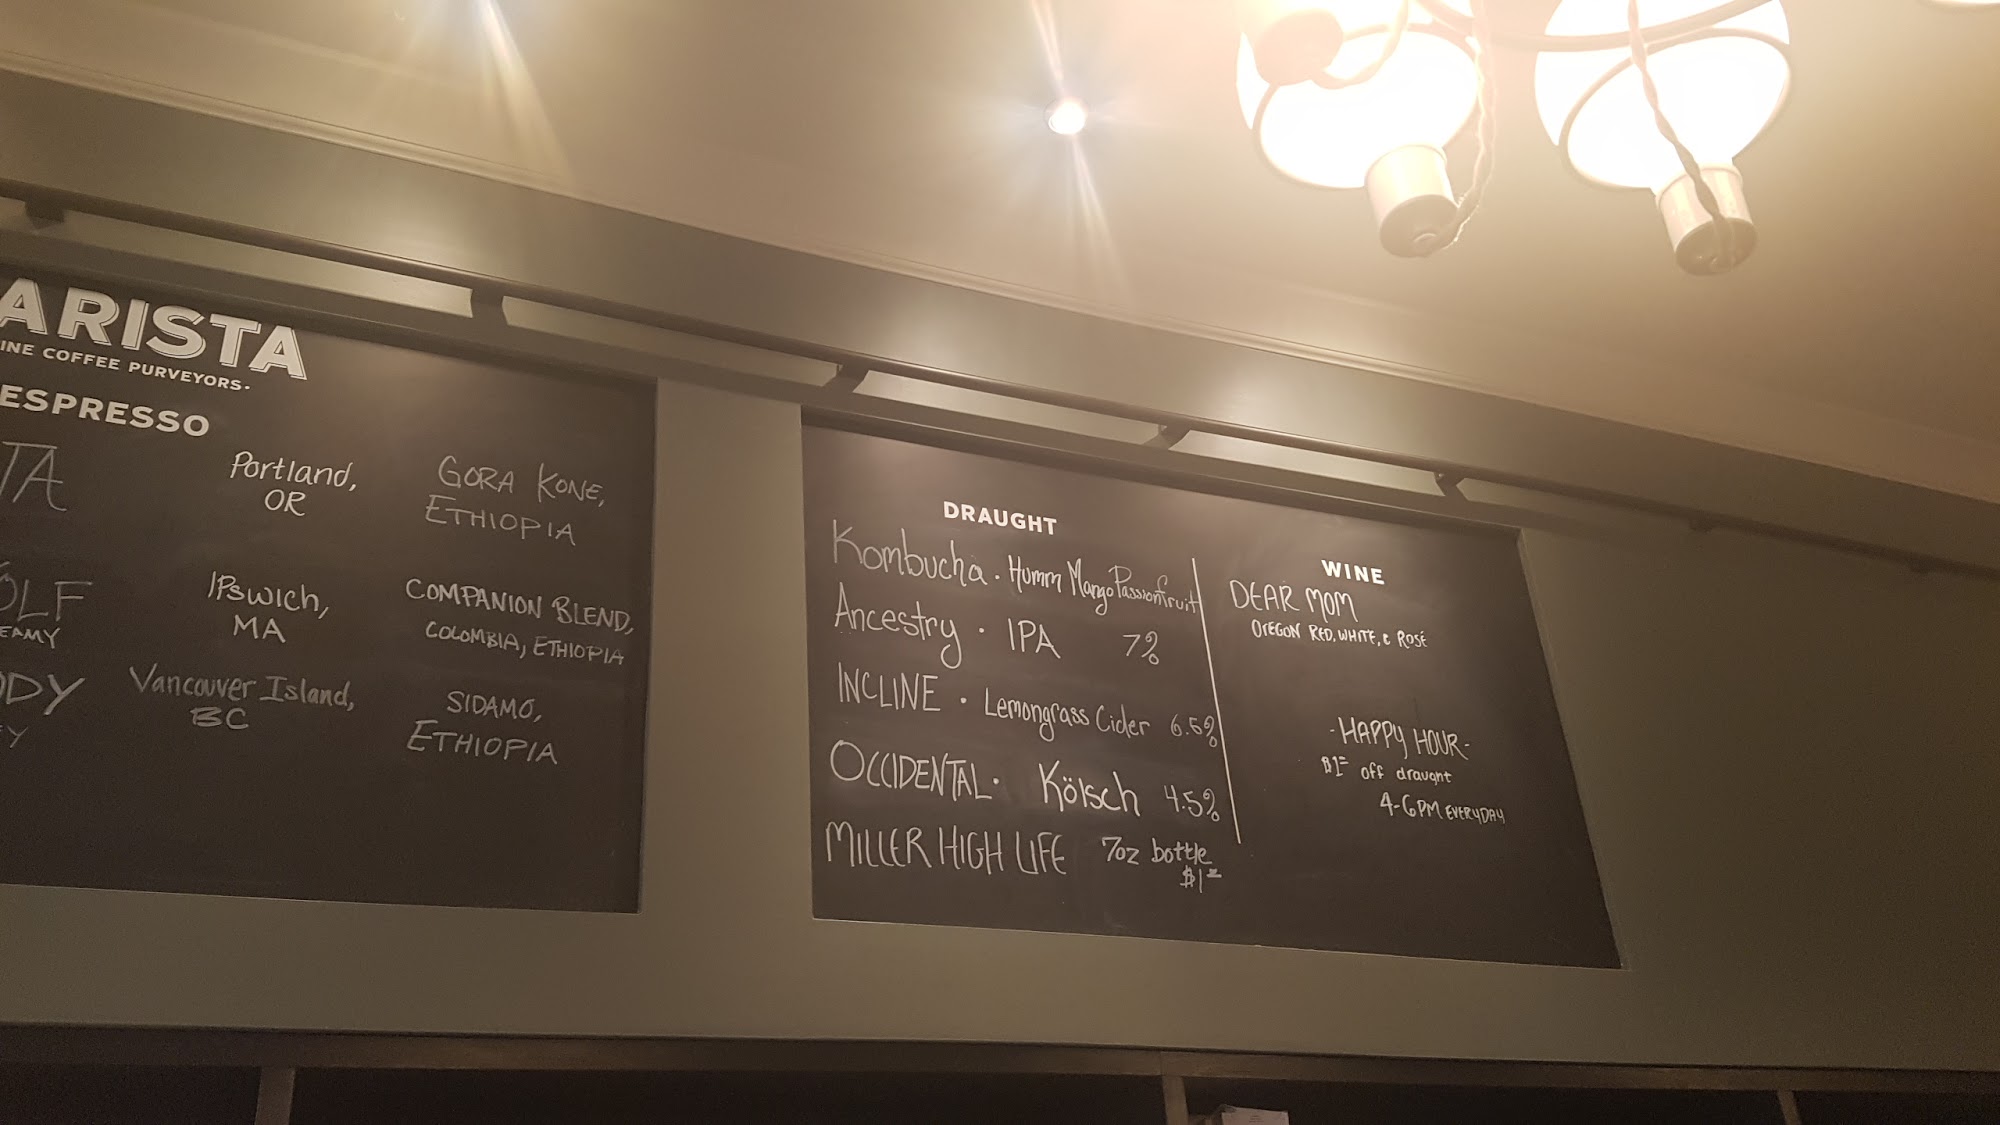 ARISTA
INE COFFEE PURVEYORS·
ESPRESSO
TA Portland, OR GORA KONE, ETHIOPIA
OLF
EAMY
IPSWICH, MA
COMPANION BLEND,
COLOMBIA, ETHIOPIA
DDY
Y
Vancouver Island,
BC
SIDAMO,
ETHIOPIA
DRAUGHT
Kombucha · Humm Mango Passionfruit
Ancestry · IPA 7%
INCLINE · Lemongrass Cider 6.5%
OCCIDENTAL · Kölsch 4.5%
MILLER HIGH LIFE 7oz bottle
$1=
WINE
DEAR MOM
OREGON RED, WHITE, & ROSÉ
-HAPPY HOUR-
$1= off draught
4-6PM EVERYDAY